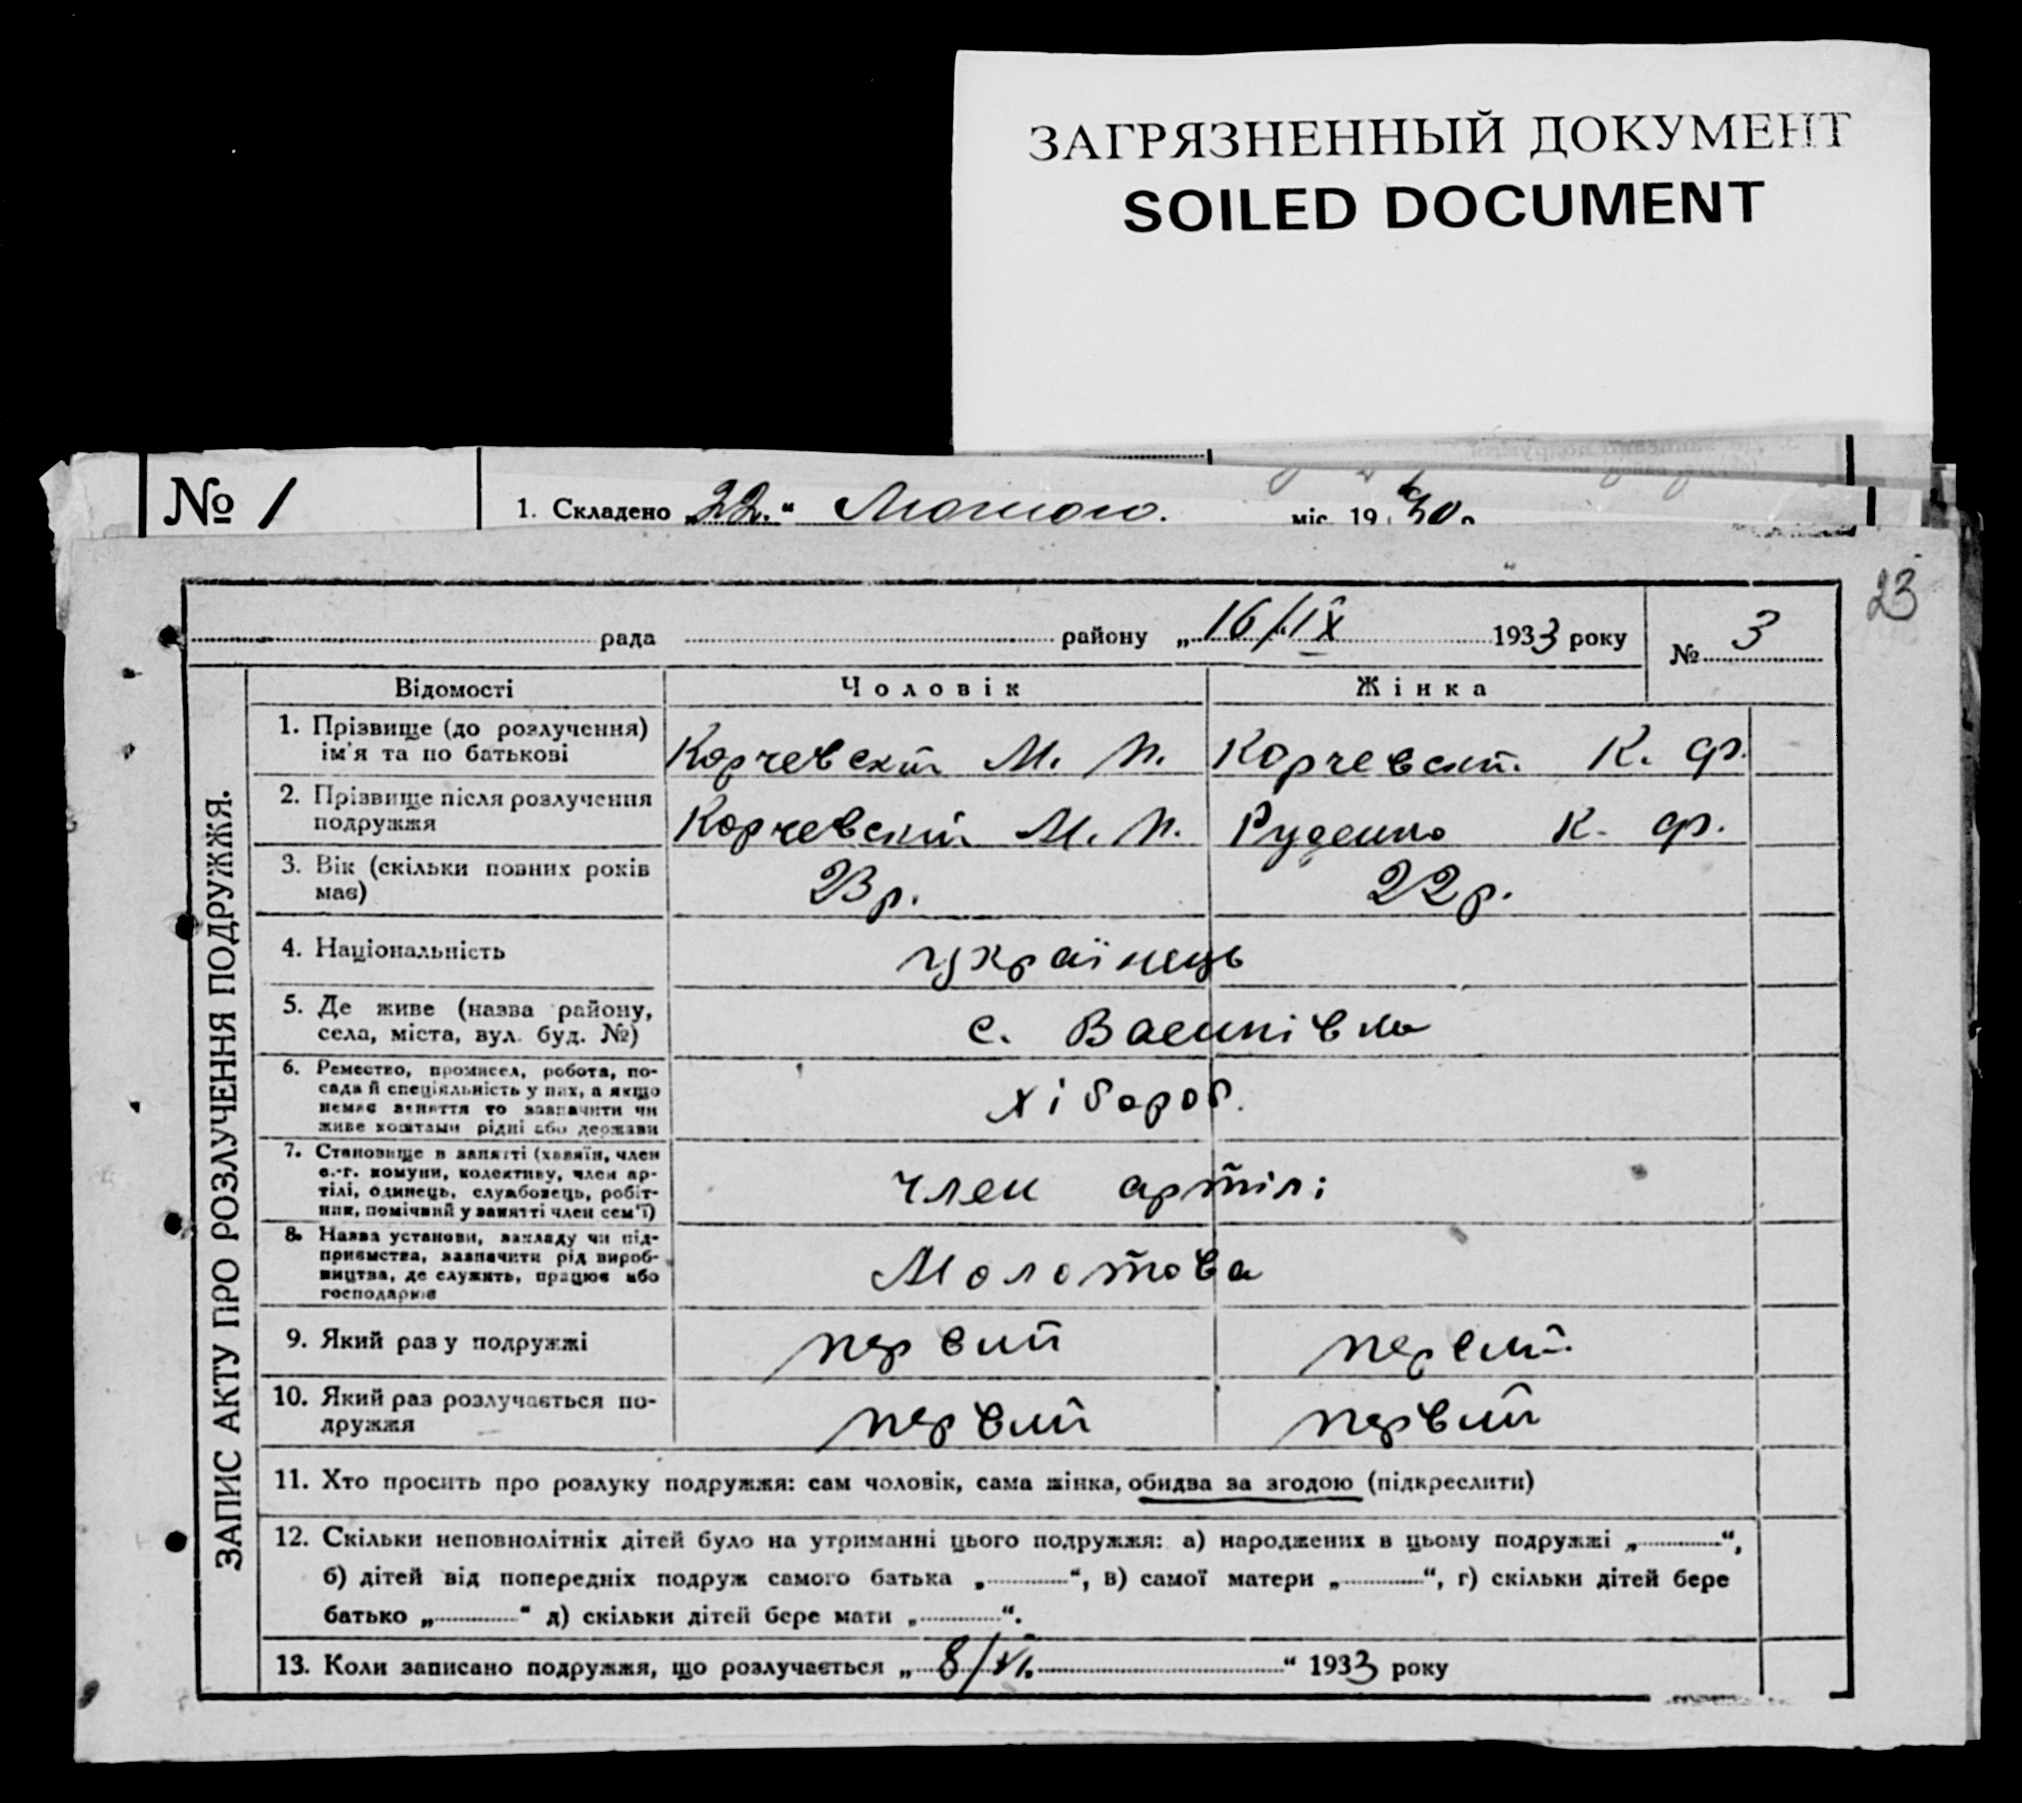 ЗАГРЯЗНЕННЫЙ ДОКУМЕНТ
SOILED DOCUMENT
№ 1
1. Складено „22.“ Лютого. міс. 1930
23
рада району „16/IX 1933 року № 3
ЗАПИС АКТУ ПРО РОЗЛУЧЕННЯ ПОДРУЖЖЯ.
Відомості Чоловік Жінка
1. Прізвище (до розлучення)
ім'я та по батькові
Корчевский М. П. Корчевский. К. Ф.
2. Прізвище після розлучення
подружжя
Корчевский М. П. Руденко К. Ф.
3. Вік (скільки повних років
має)
23 р. 22 р.
4. Національність
українець
5. Де живе (назва району,
села, міста, вул. буд. №)
с.
6. Ремество, промисел, робота, по-
сада й спеціяльність у них, а якщо
немає заняття то зазначити чи
живе коштами рідні або держави
хібороб.
7. Становище в занятті (хазяїн, член
с.-г. комуни, колективу, член ар-
тілі, одинець, службовець, робіт-
ник, помічний у занятті член сем'ї)
член артілі
8. Назва установи, закладу чи під-
приємства, зазначити рід вироб-
ництва, де служить, працює або
господарює
Молотова
9. Який раз у подружжі
первий первий
10. Який раз розлучається по-
дружжя
первий первий
11. Хто просить про розлуку подружжя: сам чоловік, сама жінка, обидва за згодою (підкреслити)
12. Скільки неповнолітніх дітей було на утриманні цього подружжя: а) народжених в цьому подружжі „ “,
б) дітей від попередніх подруж самого батька „ “, в) самої матери „ “, г) скільки дітей бере
батько „ “ д) скільки дітей бере мати „ “.
13. Коли записано подружжя, що розлучається „8/VI. “ 1933 року